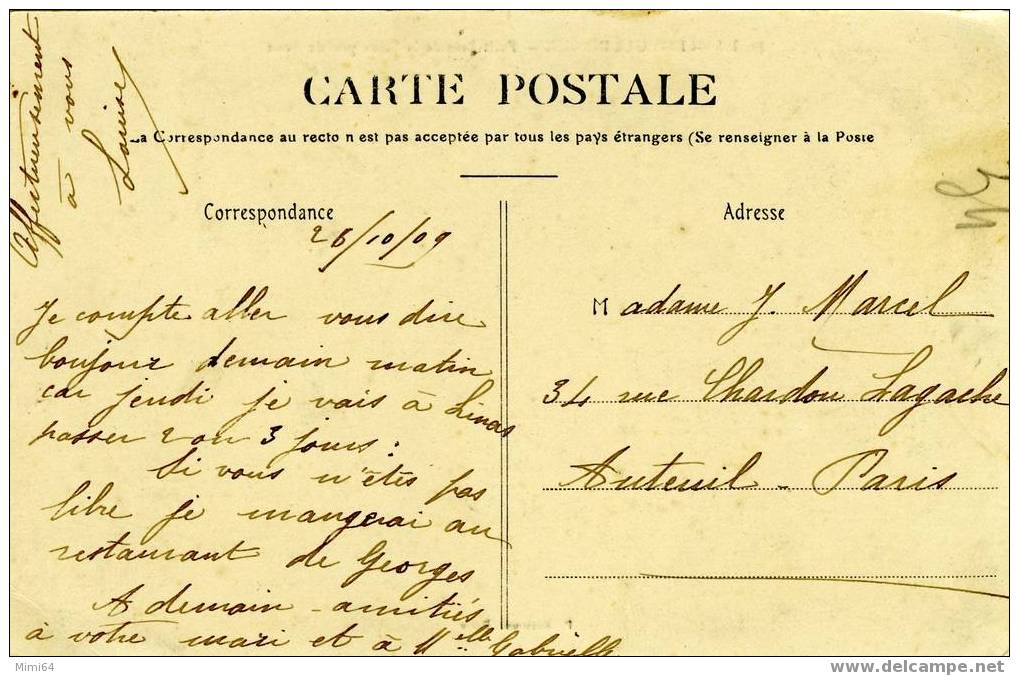 CARTE POSTALE
La Correspondance au recto n est pas acceptée par tous les pays étrangers (Se renseigner à la Poste
Correspondance
26/10/09
Je compte aller vous dire
boujour demain matin
car jeudi je vais à Linas
passer 2 ou 3 jours :
Si vous n'étés pas
libre je mangerai au
restaurant de Georges
A demain - amitiés
à votre mari et à Mlle Gabrielle
Affectueusement
à vous
Louise
Adresse
Madame J. Marcel
34 rue Chardon Lagache
Auteuil - Paris
Mimi64
delcampe.net